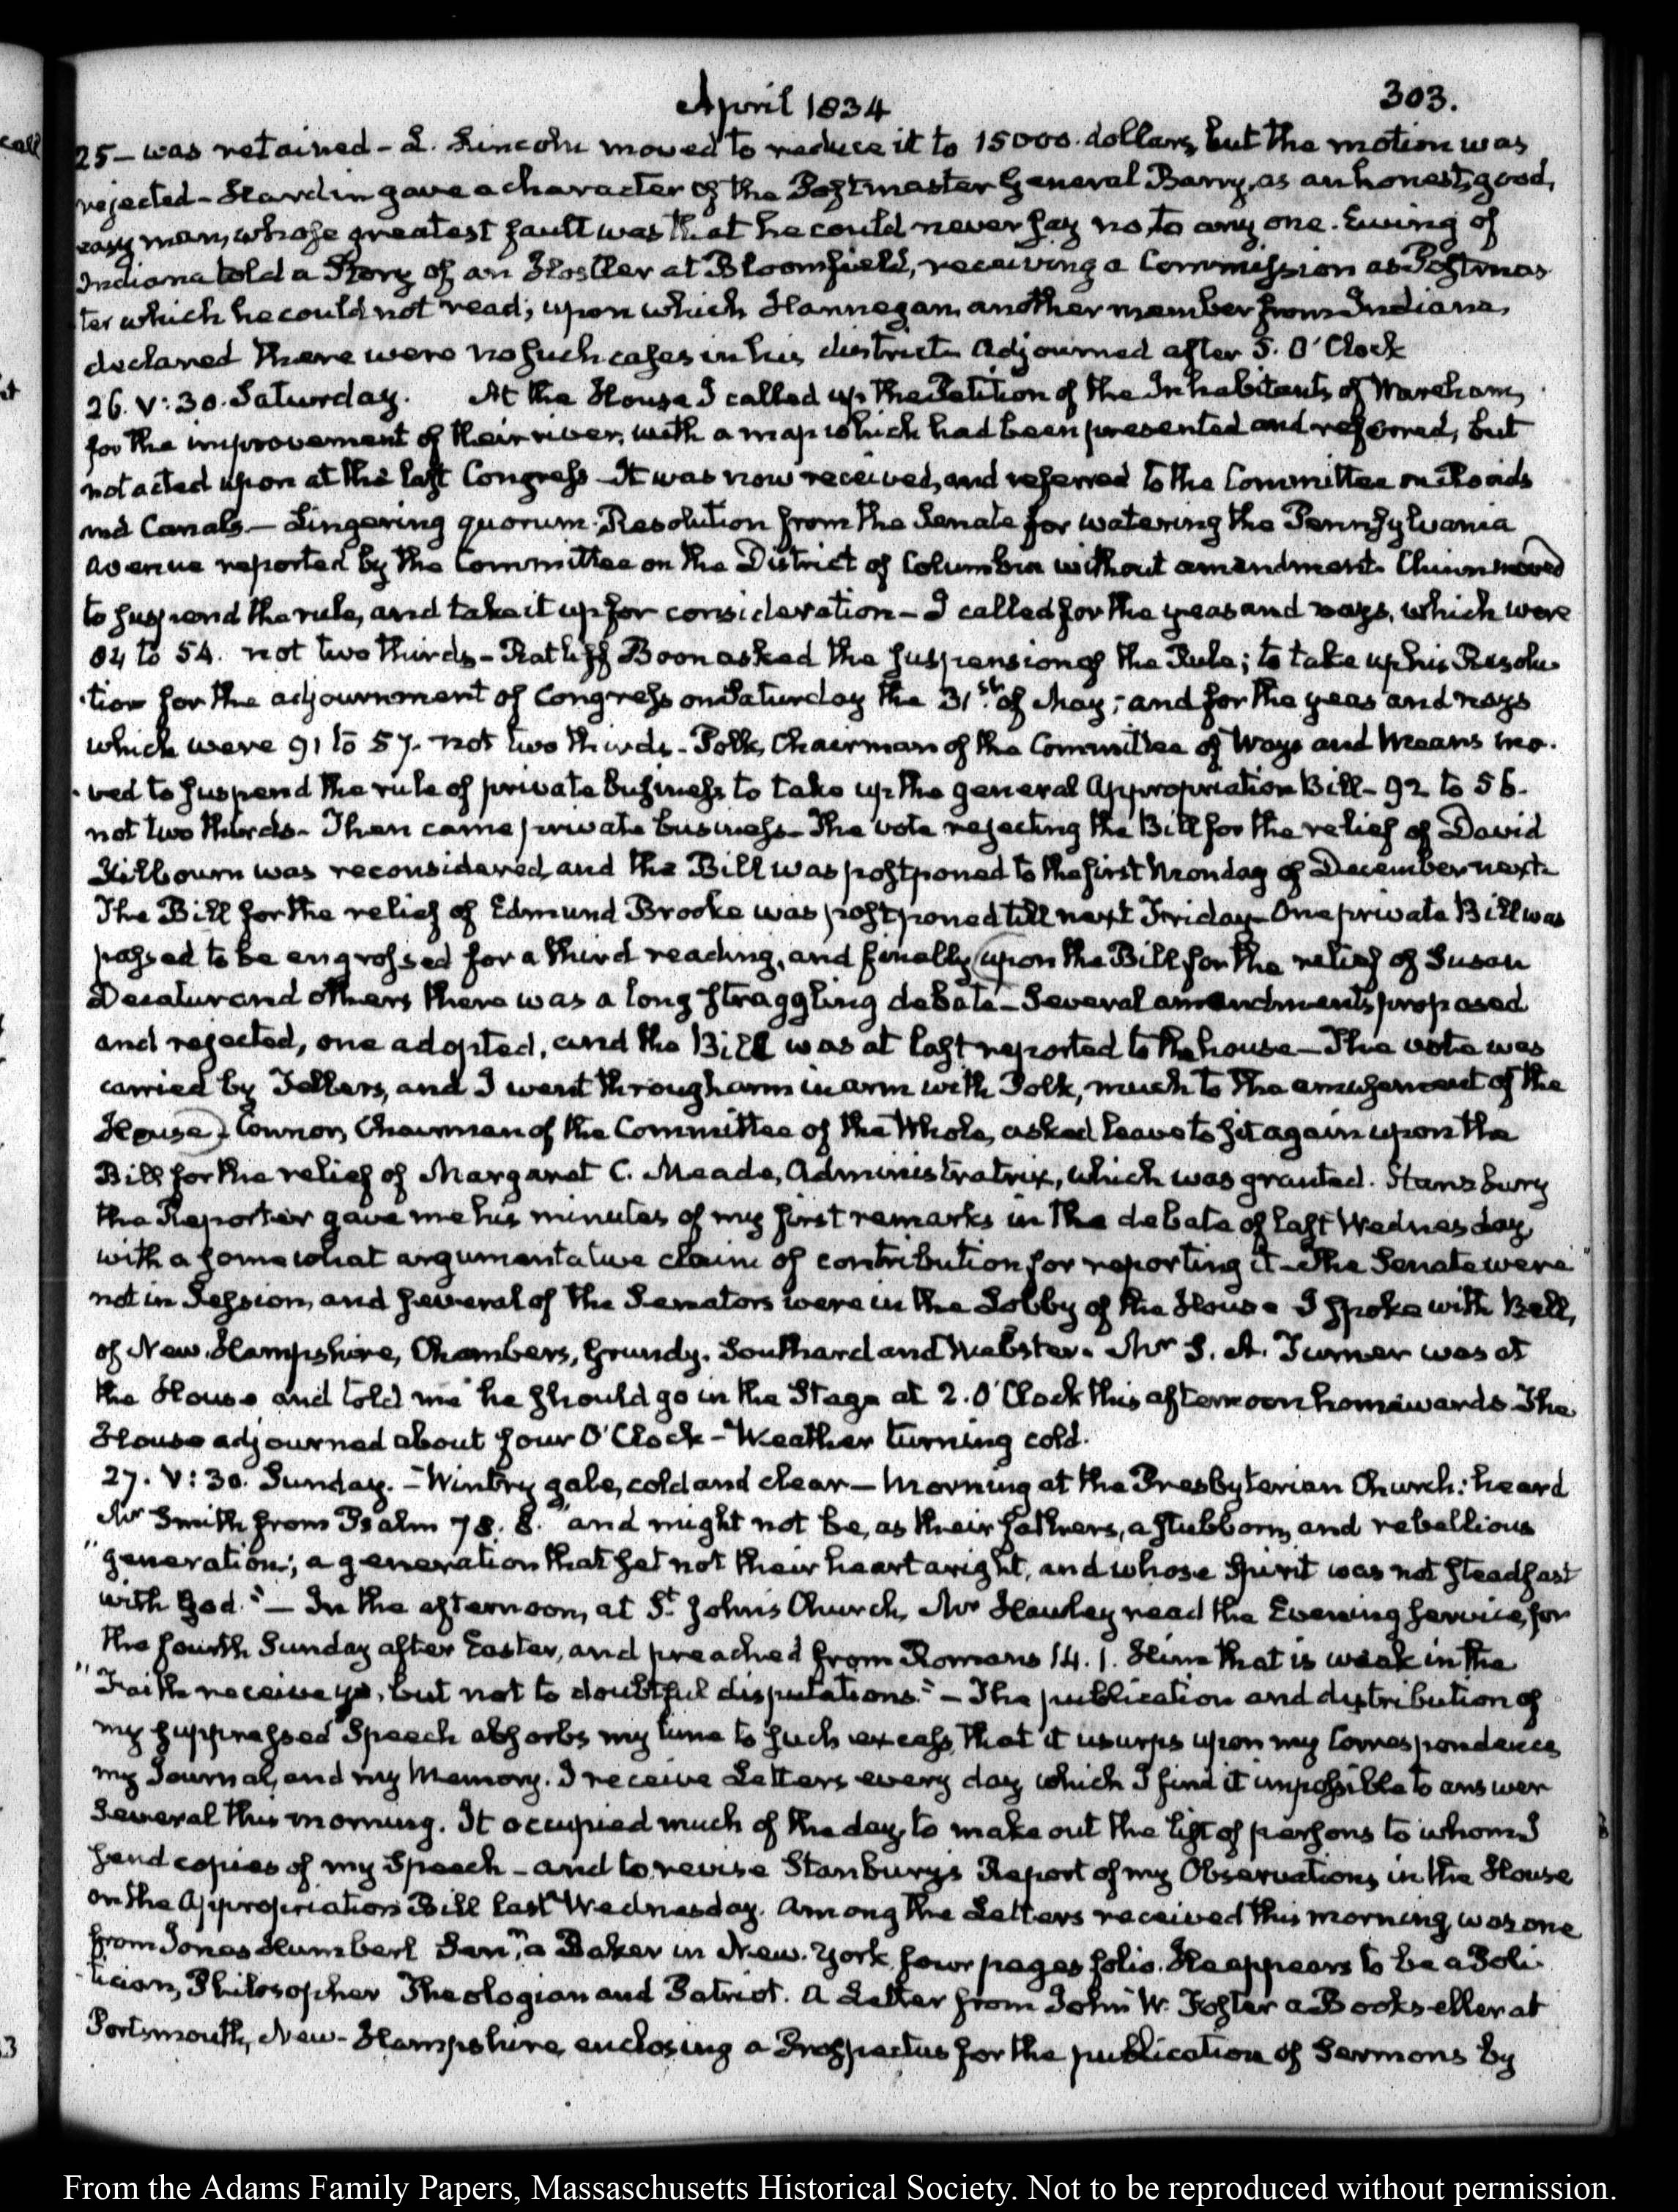 April 1834
303.
call
25 – was retained – L. Lincoln moved to reduce it to 15000. dollars, but the motion was
rejected – Hardin gave a character of the Postmaster General Barry, as an honest, good,
easy man, whose greatest fault was that he could never say no, to any one. Ewing of
Indiana told a Story of an Hostler at Bloomfield, receiving a Commission as Postmas
ter which he could not read; upon which Hannegan, another member from Indiana,
declared there were no such cases in his district. Adjourned after 5. O'Clock
26. V:30. Saturday. At the House I called up the Petition of the Inhabitants of Wareham,
for the improvement of their river, with a map which had been presented and referred, but
not acted upon at the last Congress – It was now received, and referred to the Committee on Roads
and Canals. – Lingering quorum. Resolution from the Senate for watering the Pennsylvania
Avenue reported by the Committee on the District of Columbia without amendment. Chinn moved
to suspend the rule, and take it up for consideration – I called for the yeas and nays, which were
84 to 54. not two thirds – Ratliff Boon asked the suspension of the Rule; to take up his Resolu
tion for the adjournment of Congress on Saturday the 31st of May; and for the yeas and nays
which were 91 to 57. not two thirds. Polk, Chairman of the Committee of Ways and Means mo.
ved to suspend the rule of private business to take up the general Appropriation Bill – 92 to 56.
not two thirds. Then came private business – The vote rejecting the Bill for the relief of David
Kilbourn was reconsidered, and the Bill was postponed to the first Monday of December next.
The Bill for the relief of Edmund Brooke was postponed till next Friday – One private Bill was
passed to be engrossed for a third reading, and finally (upon the Bill for the relief of Susan
Decatur and others there was a long straggling debate – Several amendments proposed
and rejected, one adopted, and the Bill was at last reported to the house – The vote was
carried by Tellers, and I went through arm in arm with Polk, much to the amusement of the
House). Connor, Chairman of the Committee of the Whole, asked leave to sit again upon the
Bill for the relief of Margaret C. Meade, Administratrix, which was granted. Stansbury
the Reporter gave me his minutes of my first remarks in the debate of last Wednesday,
with a somewhat argumentative claim of contribution for reporting it – The Senate were
not in Session, and several of the Senators were in the Lobby of the House. I spoke with Bell,
of New. Hampshire, Chambers, Grundy. Southard and Webster. Mr S. A. Turner was at
the House and told me he should go in the Stage at 2. O'Clock this afternoon homewards. The
House adjourned about four O'Clock – Weather turning cold.
27. V:30. Sunday. – Wintry gale, cold and clear – Morning at the Presbyterian Church: heard
Mr Smith from Psalm 78. 8. "and might not be, as their fathers, a stubborn, and rebellious
"generation; a generation that set not their heart aright, and whose Spirit was not steadfast
with God." – In the afternoon, at St. John's Church, Mr Hawley read the Evening service, for
the fourth Sunday after Easter, and preached from Romans 14. 1. Him that is weak in the
"Faith receive ye, but not to doubtful disputations." – The publication and distribution of
my suppressed Speech absorbs my time to such excess, that it usurps upon my Correspondence
my Journal, and my Memory. I receive Letters every day which I find it impossible to answer
Several this morning. It occupied much of the day, to make out the list of persons to whom I
send copies of my Speech – and to revise Stanbury's Report of my Observations in the House
on the Appropriation Bill last Wednesday. Among the Letters received this morning, was one
from Jonas Humbert Senr, a Baker in New. York, four pages folio. He appears to be a Poli
tician, Philosopher Theologian and Patriot. A Letter from John W. Foster a Bookseller at
Portsmouth, New-Hampshire, enclosing a Prospectus for the publication of Sermons by
From the Adams Family Papers, Massachusetts Historical Society. Not to be reproduced without permission.